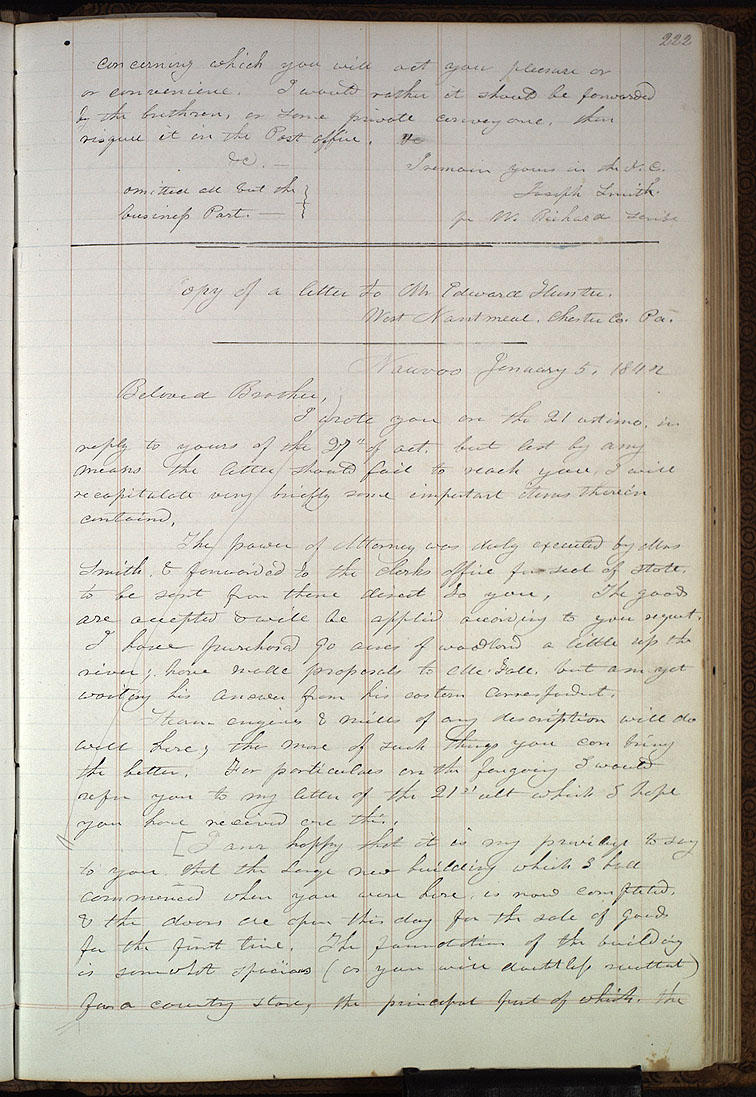 222
concerning which you will act you pleasure or
or convenience. I would rather it should be forwarded
by the brethren, or some private conveyance, than
risque it in the Post office.
&c. — I remain yours in the E. C.
omitted all but the Joseph Smith.
business Part. — per W. Richard Scribe
Copy of a letter to Mr Edward Hunter.
West Nantmeal. Chester Co. Pa.
Nauvoo January 5, 1842
Beloved Brother,
I wrote you on the 21 ultimo, in
reply to yours of the 27th of oct. but lest by any
means the letter should fail to reach you, I will
recapitulate very briefly some important items therein
contained,
The power of Attorney was duly executed by Mrs
Smith, & forwarded to the Clerks office for seal of State.
to be sent from thence direct to you, The goods
are accepted & will be applied according to you request.
I have purchased 90 acres of woodland a little up the
river; have made proposals to Mc Fall. but am yet
waiting his answer from his eastern correspondent.
Steam engines & mills of any description will do
well here; the more of such things you can bring
the better. For particulars on the forgoing I would
refer you to my letter of the 21st ult which I hope
you have received ere this.
[I am happy that it is my privilege to say
to you that the large new building which I had
commenced when you were here, is now completed,
& the doors are open this day for the sale of goods
for the first time. The foundation of the building
is somewhat spacious (as you will doubtless recollect)
for a country store, the principal part of which. the